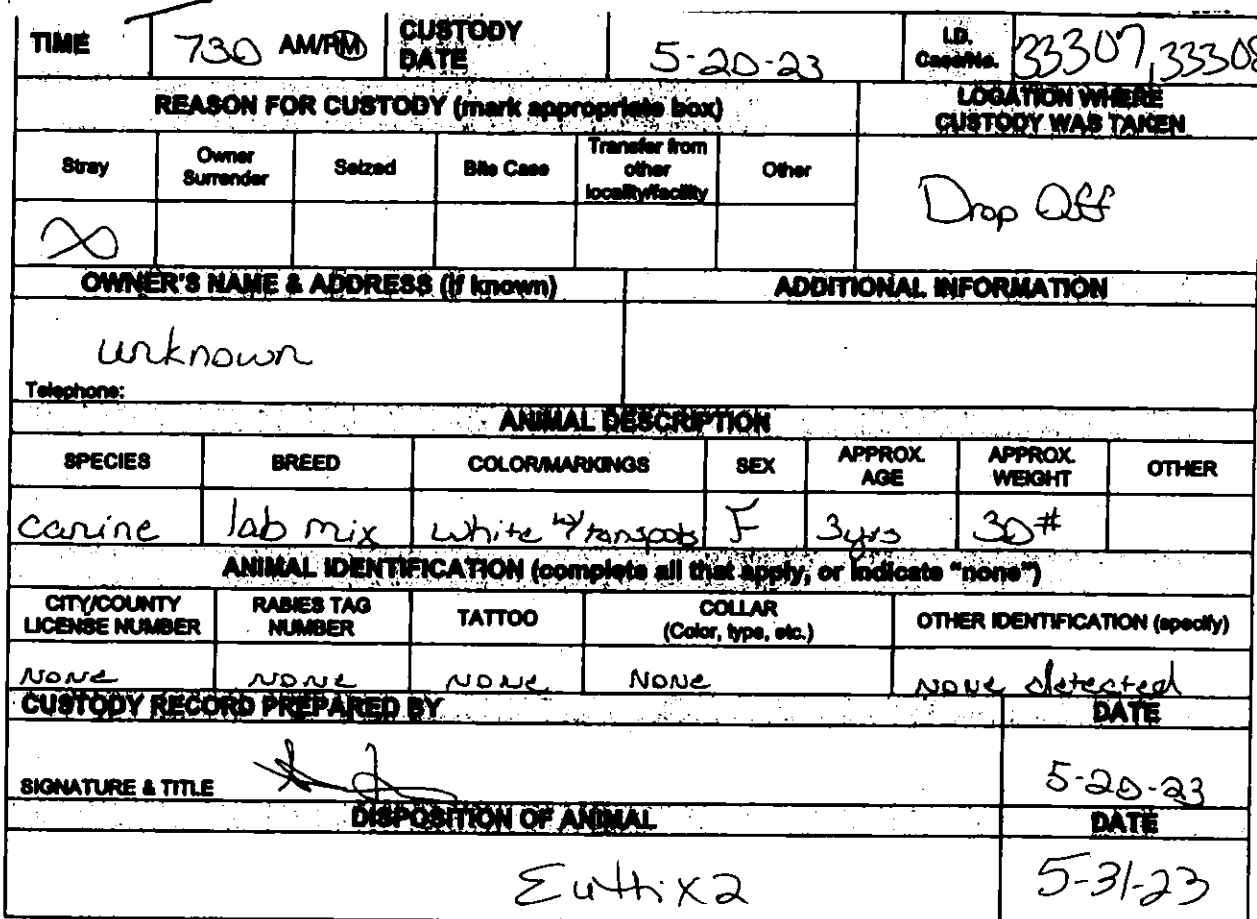 TIME 730 AM/PM CUSTODY DATE 5-20-23 I.D. Case/No. 33307, 33308
REASON FOR CUSTODY (mark appropriate box) LOCATION WHERE CUSTODY WAS TAKEN
Stray Owner Surrender Seized Bite Case Transfer from other locality/facility Other
X Drop Off
OWNER'S NAME & ADDRESS (if known) ADDITIONAL INFORMATION
unknown
Telephone:
ANIMAL DESCRIPTION
SPECIES BREED COLOR/MARKINGS SEX APPROX. AGE APPROX. WEIGHT OTHER
canine lab mix white w/ tanspots F 3yrs 30#
ANIMAL IDENTIFICATION (complete all that apply, or indicate "none")
CITY/COUNTY LICENSE NUMBER RABIES TAG NUMBER TATTOO COLLAR (Color, type, etc.) OTHER IDENTIFICATION (specify)
None none none None none detected
CUSTODY RECORD PREPARED BY DATE
SIGNATURE & TITLE 5-20-23
DISPOSITION OF ANIMAL DATE
Euth x2 5-31-23